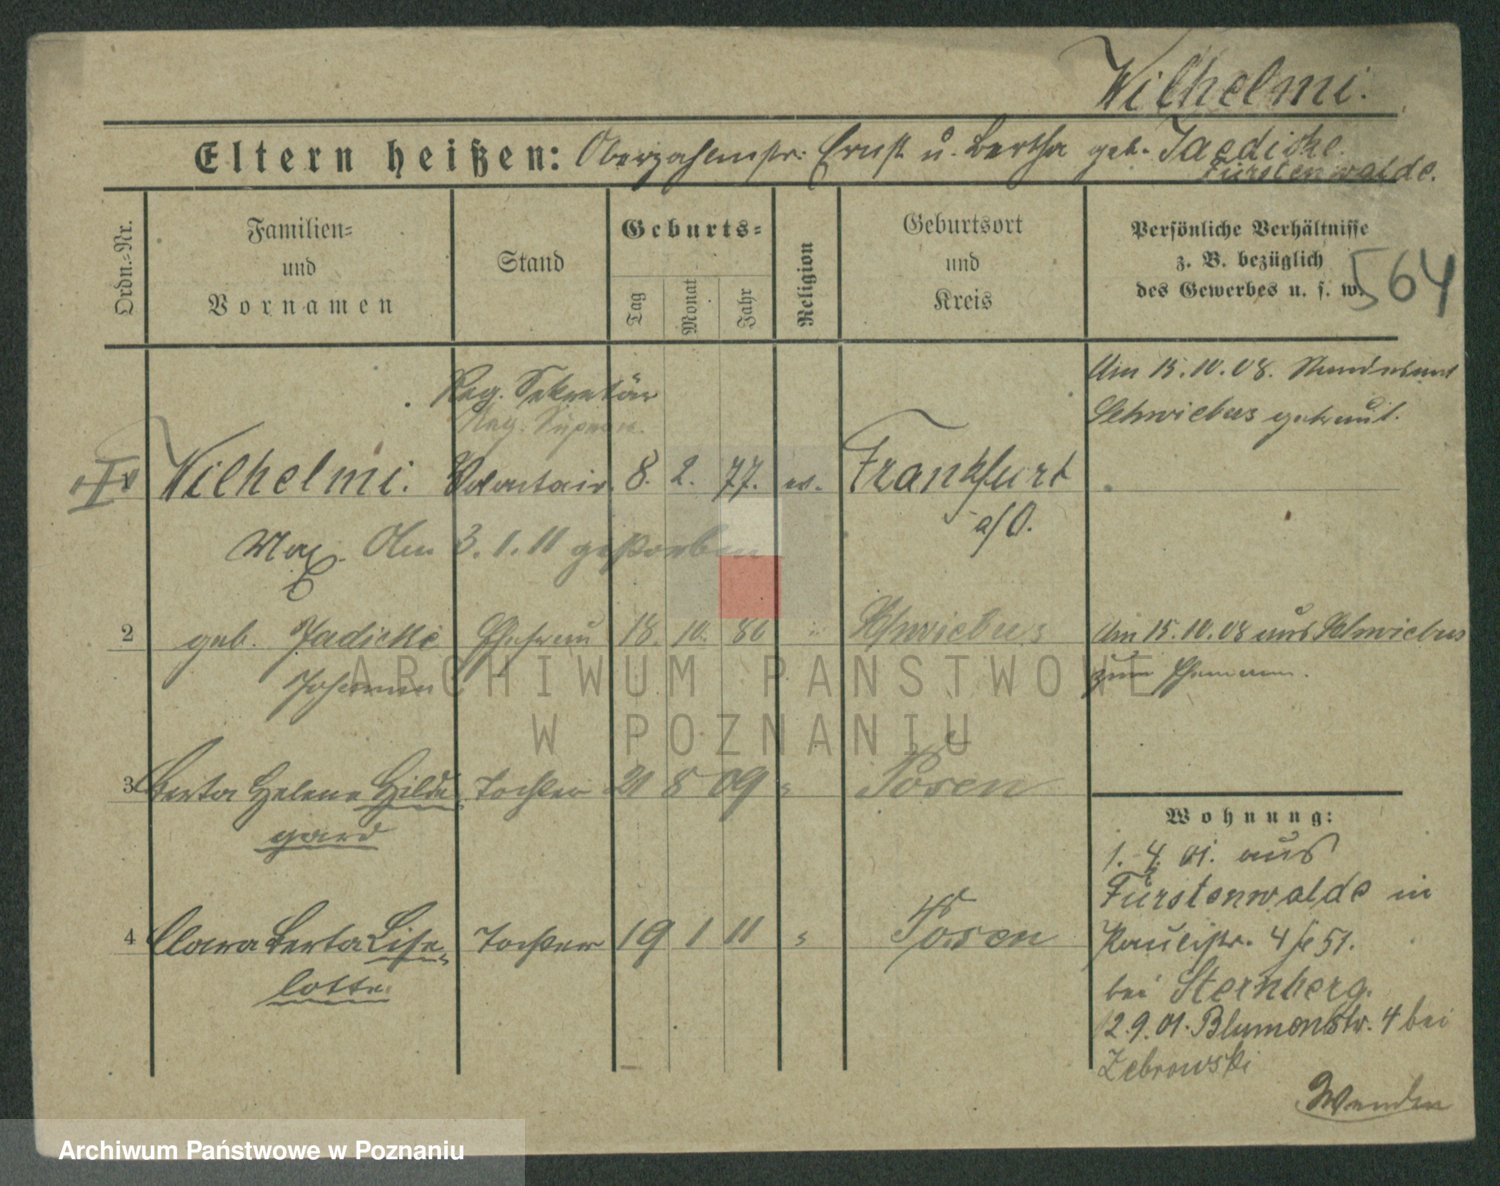 Wilhelmi.
Eltern heißen: Oberzahlmstr. Ernst u. Bertha geb. Jaedicke
Fürstenwalde.
Ordn.-Nr.
Familien- und Vornamen
Stand
Geburts-
Tag
Monat
Jahr
Religion
Geburtsort und Kreis
Persönliche Verhältnisse
z. B. bezüglich
des Gewerbes u. s. w.
564
Reg. Sekretär
Reg. Supern.
Am 15.10.08. Standesamt
Schwiebus getraut.
Wilhelmi. Volontair. 8. 2. 77. ev. Frankfurt
a/O.
Max. Am 3.1.11 gestorben
2 geb. Jadicke Ehefrau 18. 10. 86 " Schwiebus
Johanna
Am 15.10.08 aus Schwiebus
zum Ehemann.
3 Berta Helene Hilde- Tochter 21 8 09 " Posen
gard
4 Clara Berta Lise- Tochter 19 1 11 " Posen
lotte.
Wohnung:
1.4.01. aus
Fürstenwalde in
Paulistr. 4
bei Sternberg.
12.9.01. Blumenstr. 4 bei
Zebrowski
Wenden
ARCHIWUM PAŃSTWOWE
W POZNANIU
Archiwum Państwowe w Poznaniu